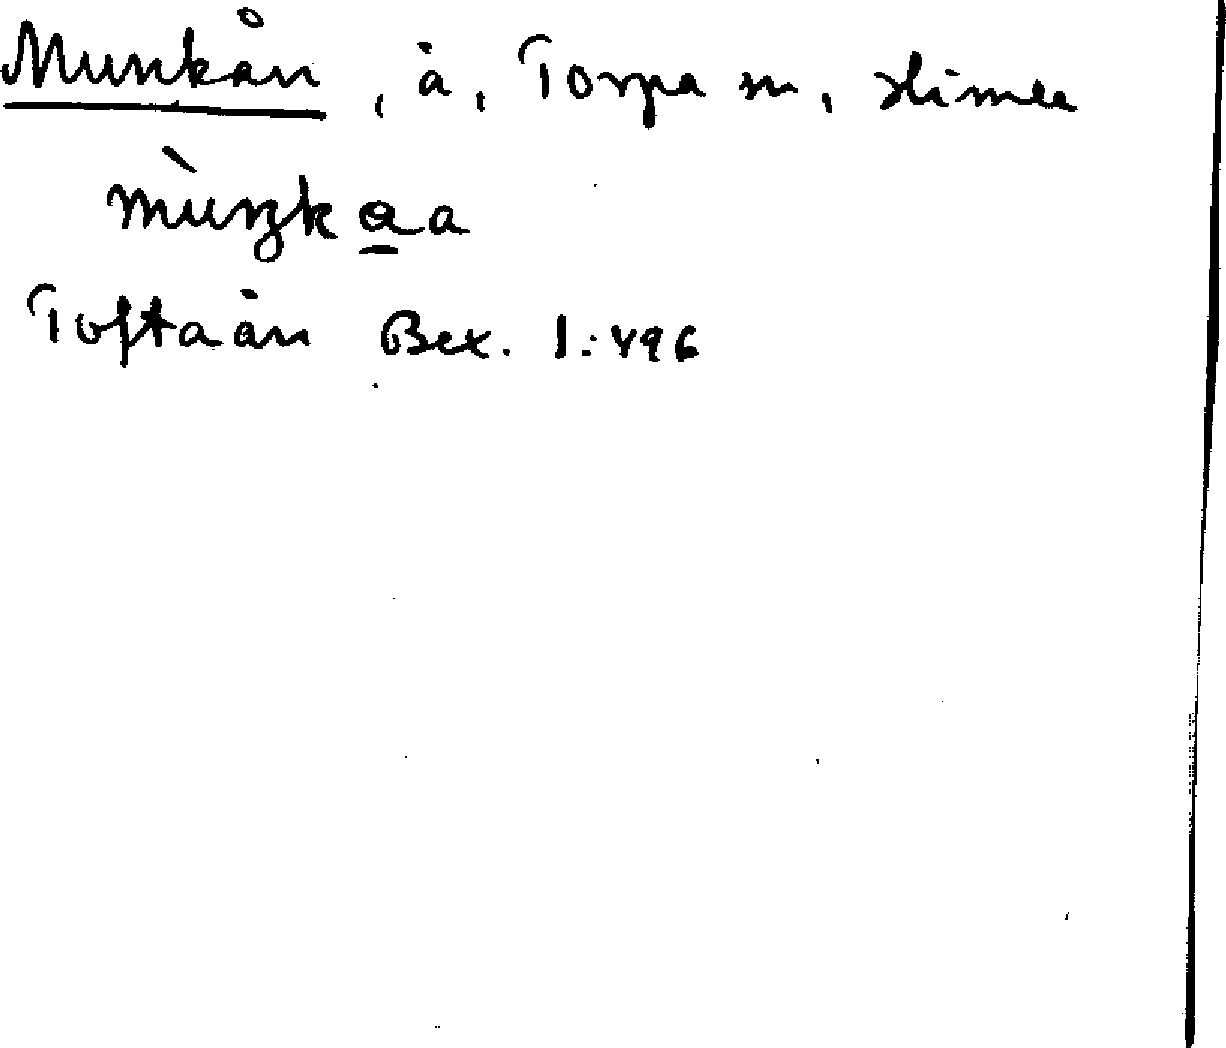 Munkån, å, Torpa sn, Himle
mùŋkaa
Toftaån Bex. 1:496